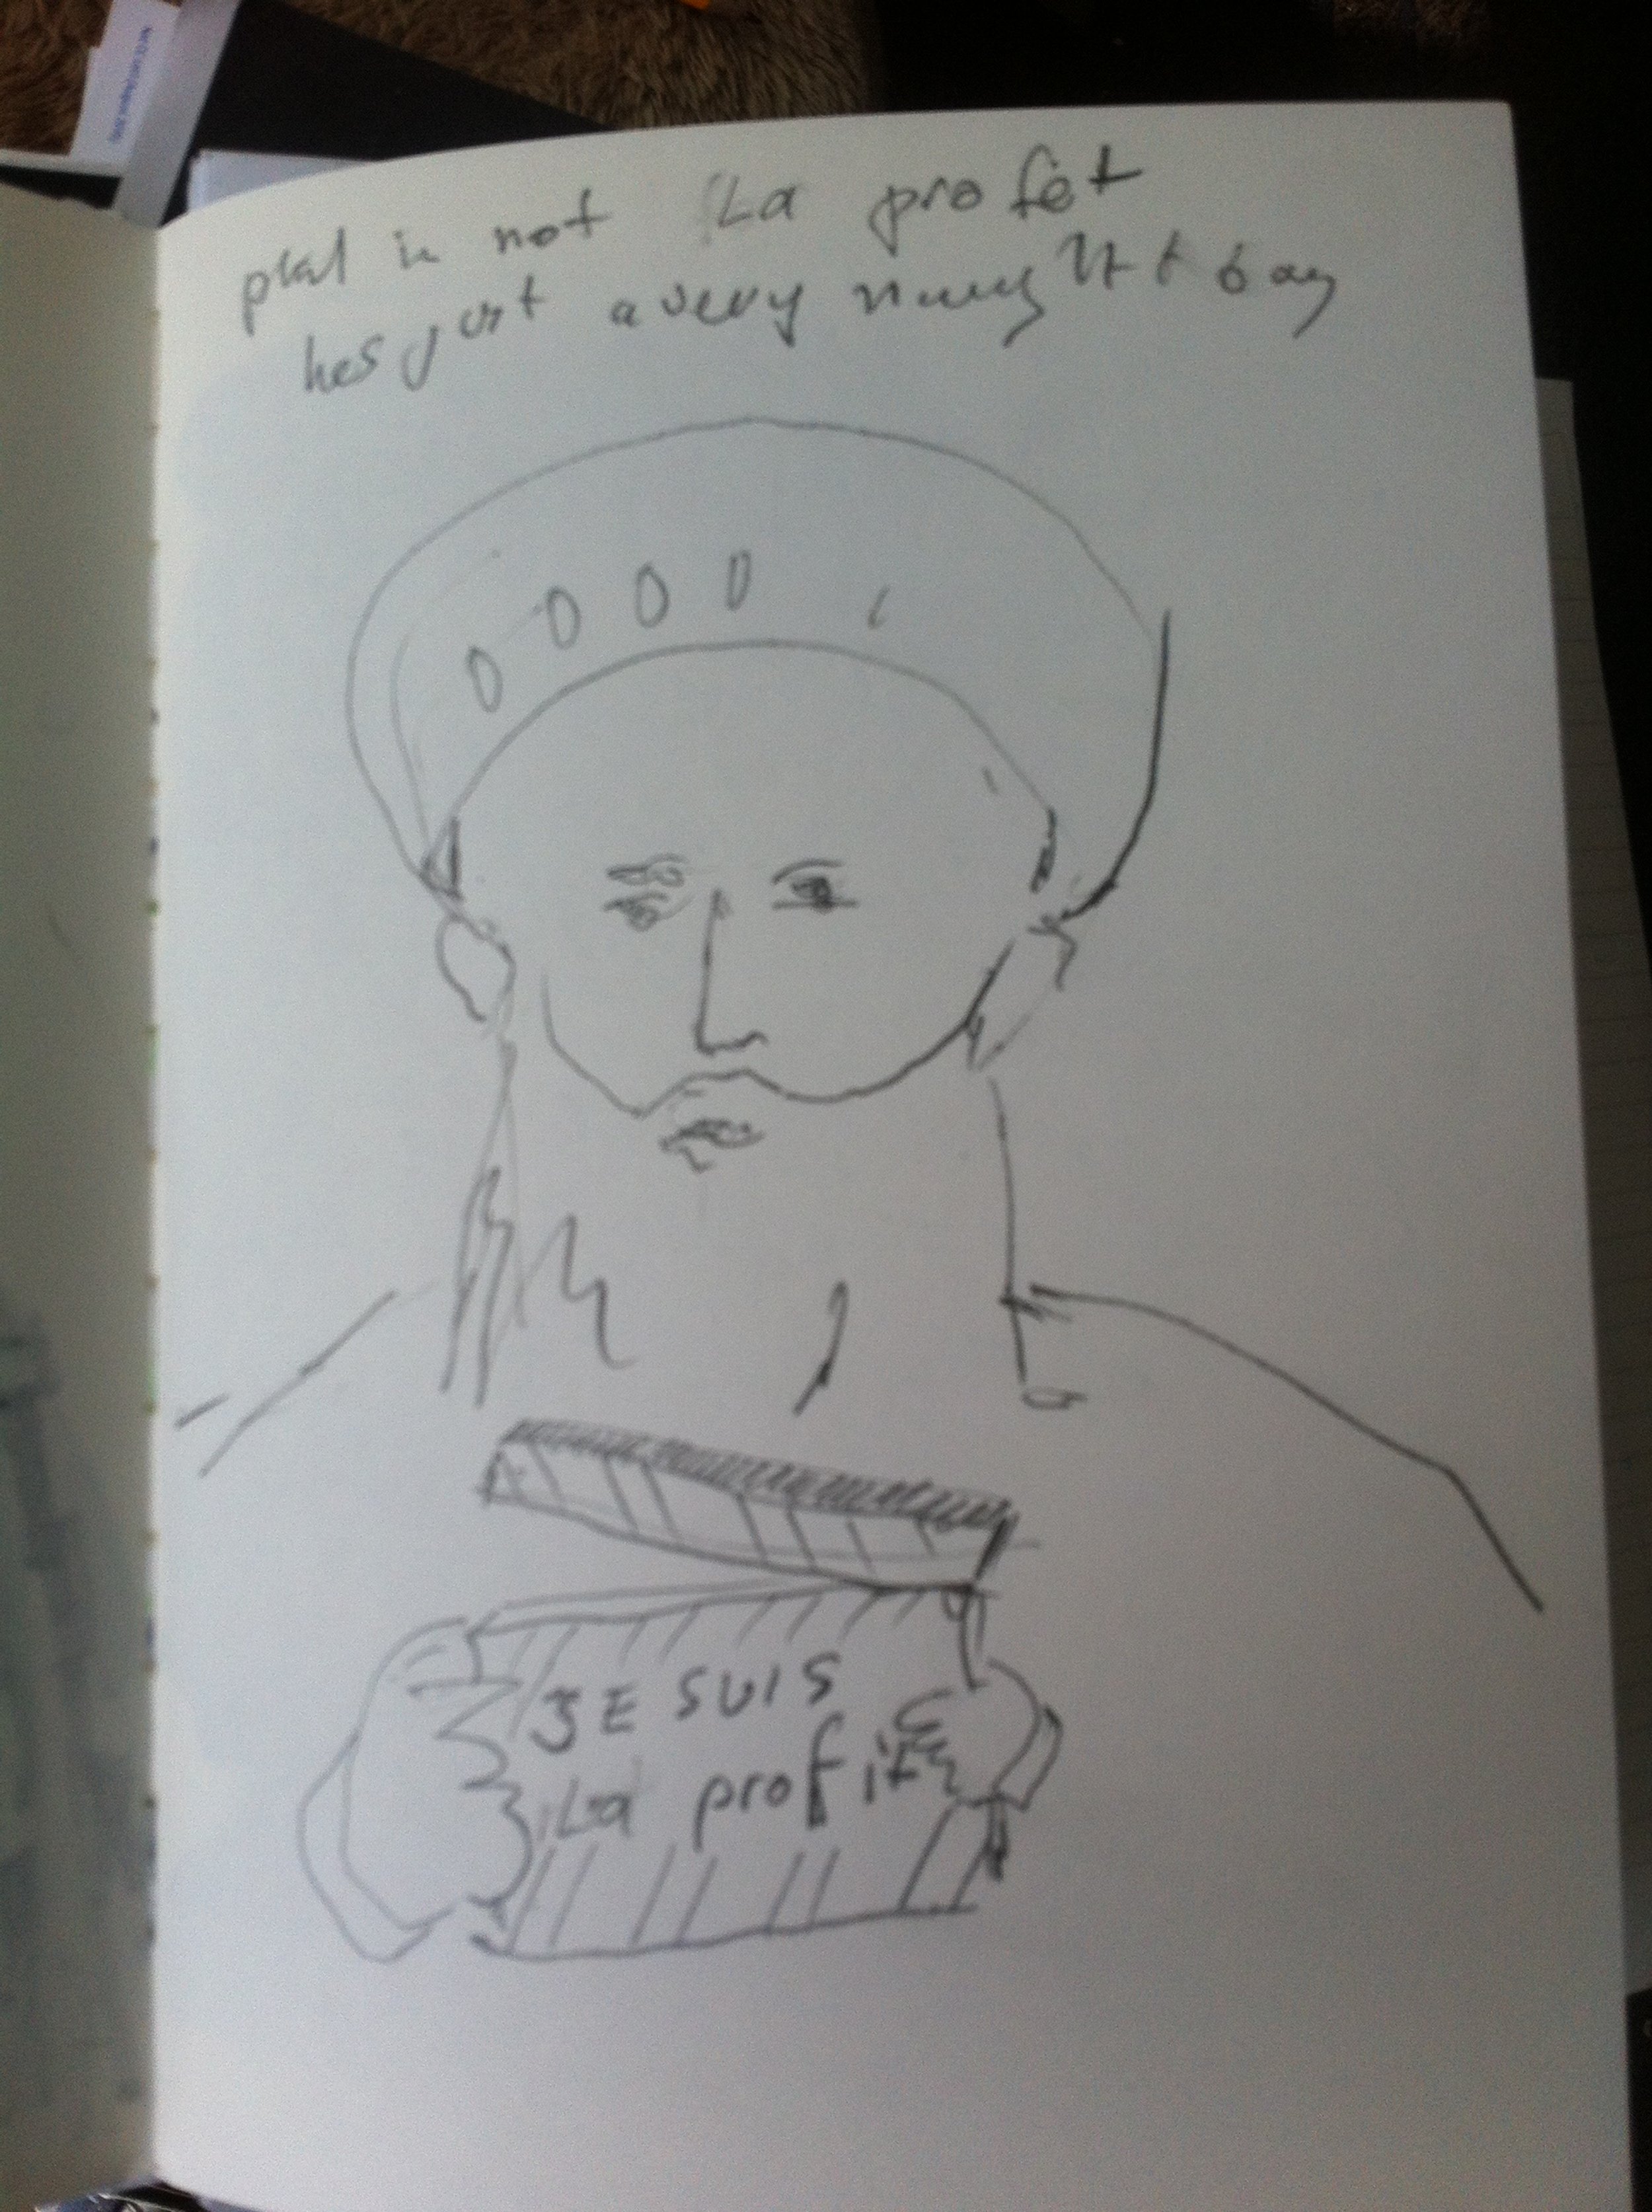 is not La profet
hes just a very naughty boy
JE SUIS
La profit